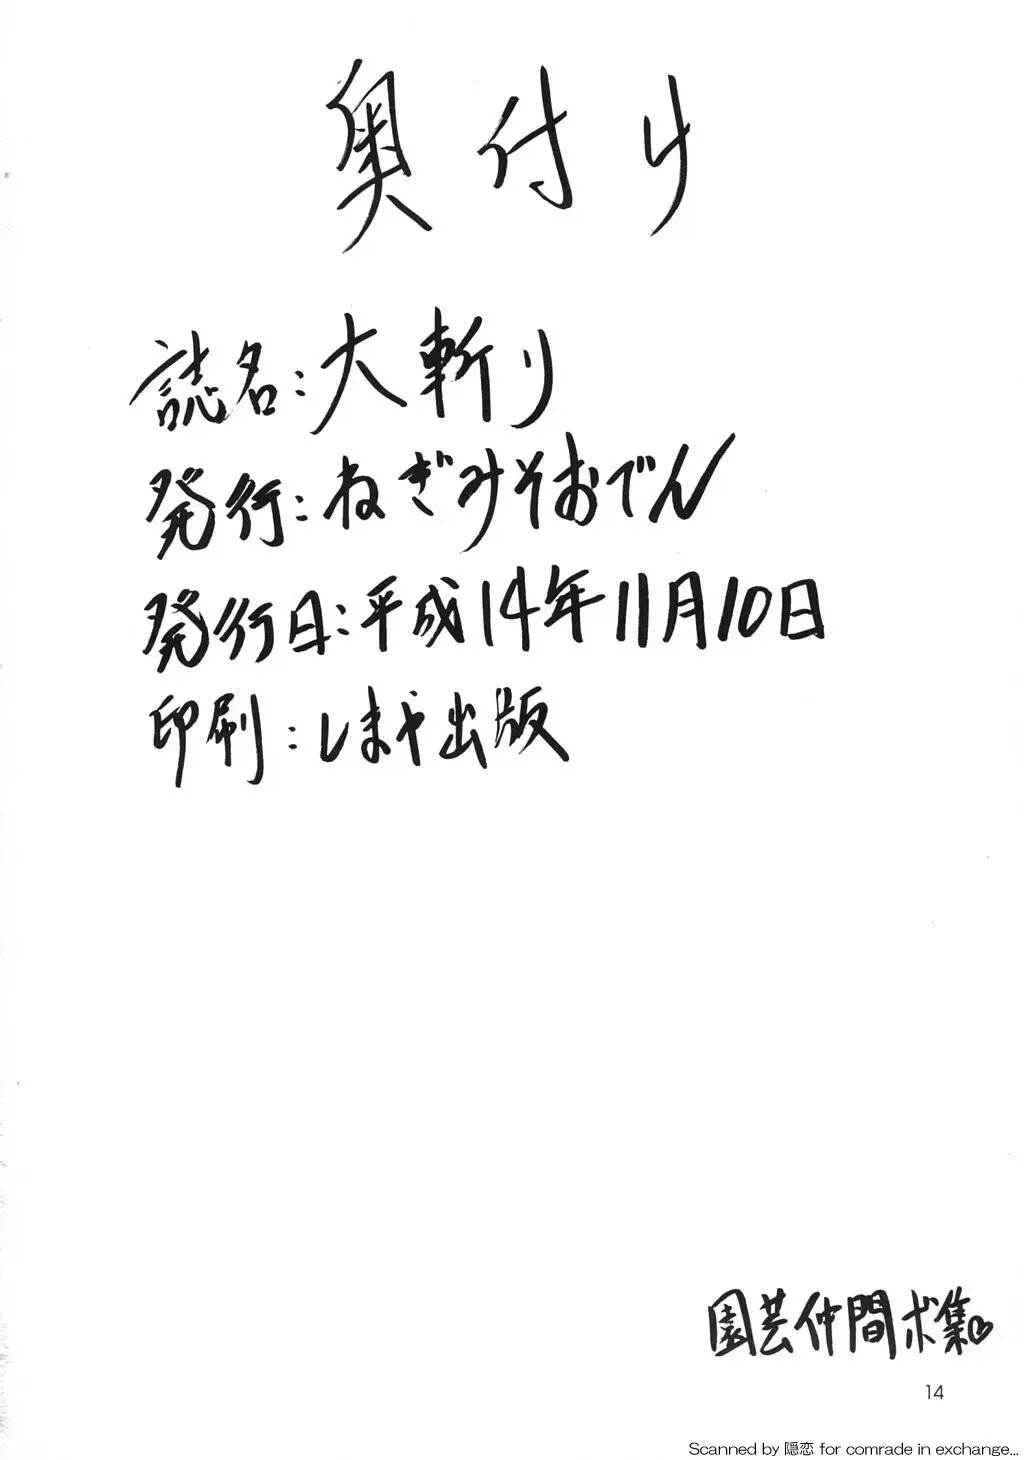 奥付け
誌名:大斬り
発行:ねぎみそおでん
発行日:平成14年11月10日
印刷:しまや出版
園芸仲間ボ集♡
14
Scanned by 隠恋 for comrade in exchange...